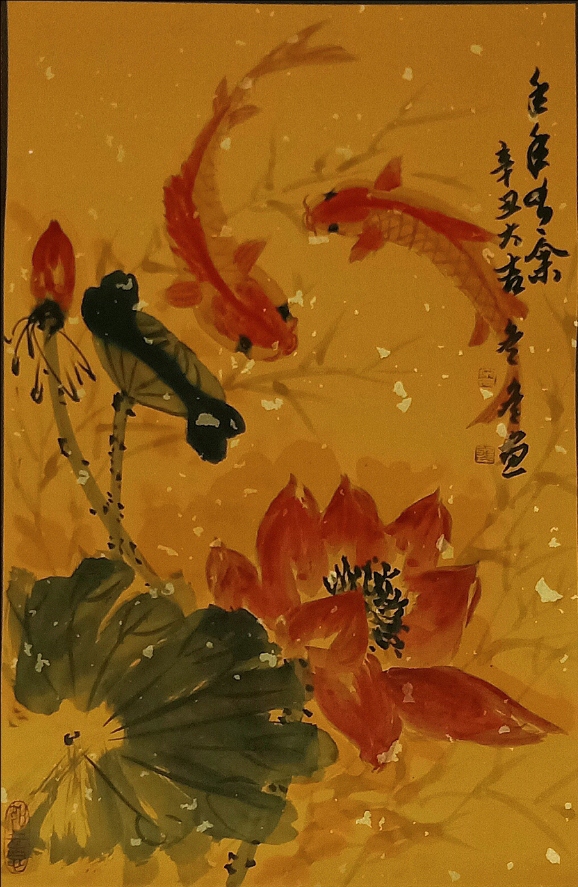 年年有余
辛丑大吉 画